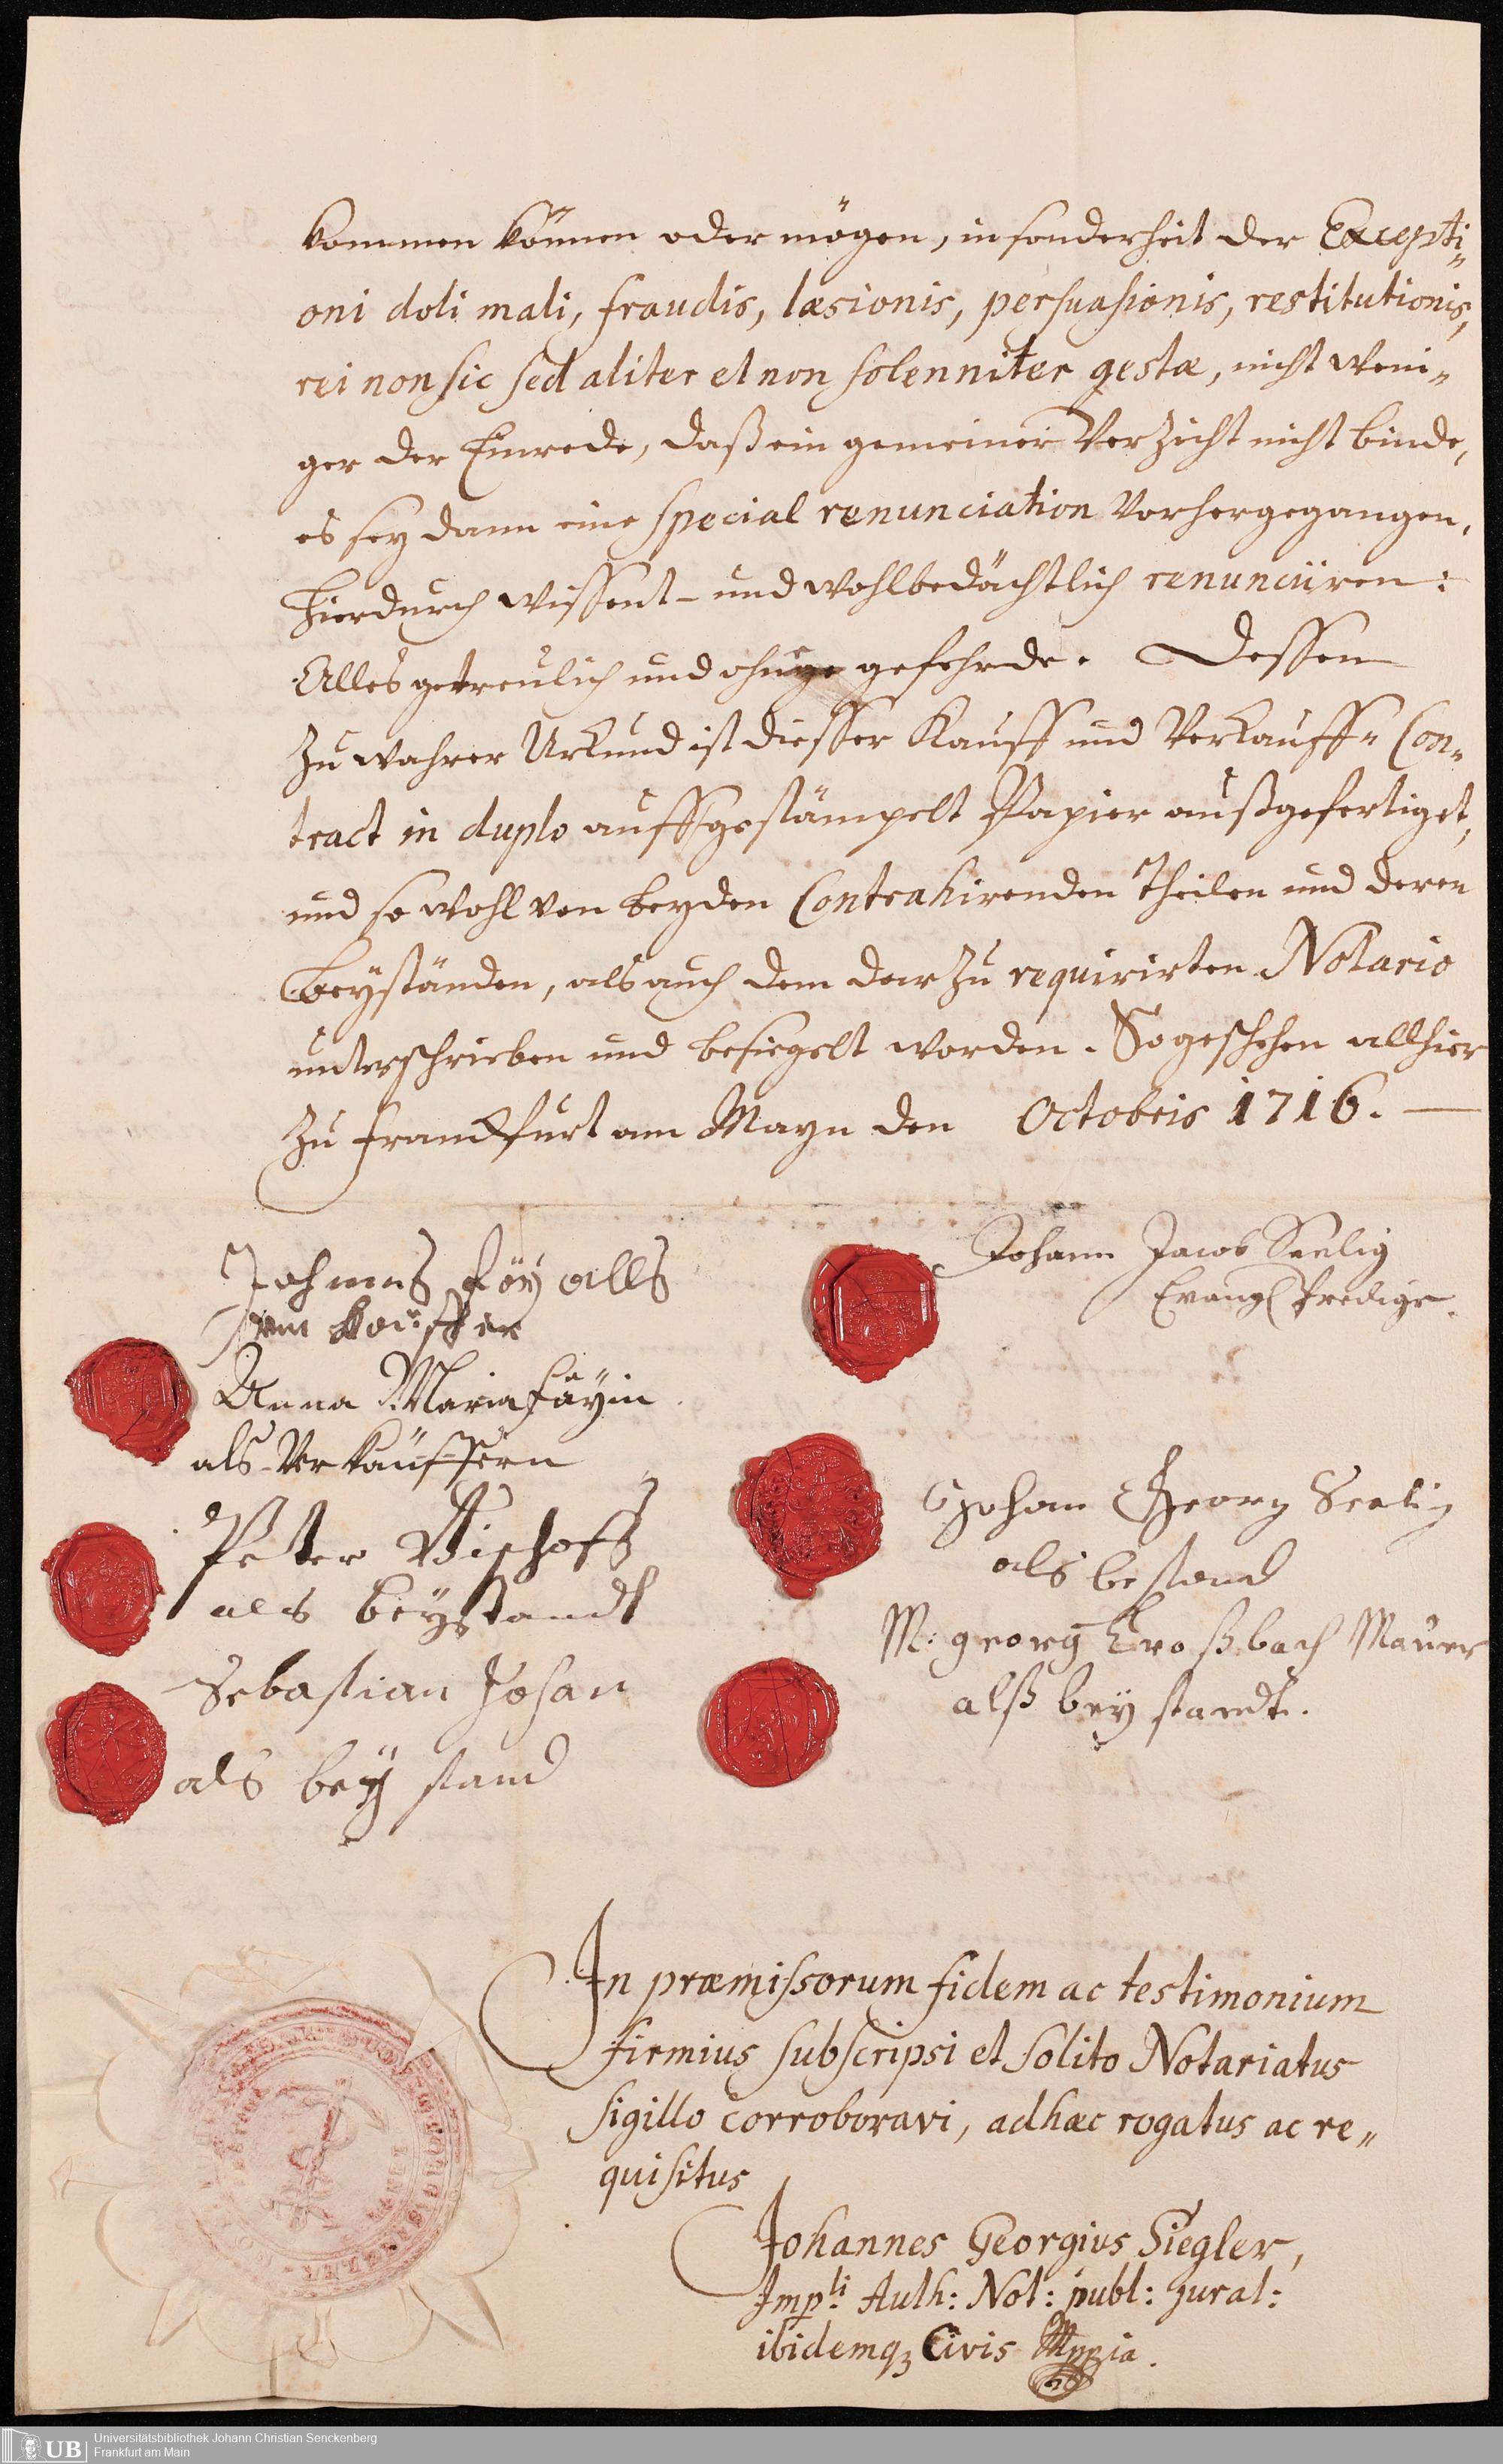 kommen können oder mögen, insonderheit der Excepti„
oni doli mali, fraudis, læsionis, persuasionis, restitutionis,
rei non sic sed aliter et non solenniter gestæ, nicht weni„
ger der Einrede, daß ein gemeiner Verzicht nicht binde,
es sey dann eine special renunciation vorhergegangen,
hierdurch wissent- und wohlbedächtlich renunciiren:
Alles getreulich und ohne gefehrde. Dessen
zu wahrer Urkund ist diesser Kauff und Verkauff„ Con„
tract in duplo auff gestämpelt Papier außgefertiget,
und so wohl von beyden Contrahirenden Theilen und deren
Beyständen, als auch dem darzu requirirten Notario
unterschrieben und besiegelt worden. So geschehen allhier
zu Franckfurt am Mayn den Octobris 1716.
Johannes Föÿ alls
Johann Jacob Seelig
Evangl Prediger.
Kauffer
Anna Maria Fäyin
als Verkäuffern
Peter Bischoff
als Beÿstandt
Johan Georg Seelig
als bestand
M: georg Großbach Maurer
alß beÿ standt.
Sebastian Johan
als beÿ stand
In præmissorum fidem ac testimonium
firmius subscripsi et solito Notariatus
sigillo corroboravi, ad hæc rogatus ac re„
quisitus
Johannes Georgius Siegler,
Imp:li Auth: Not: publ: jurat:
ibidemq3 Civis Mppia.
UB
Universitätsbibliothek Johann Christian Senckenberg
Frankfurt am Main